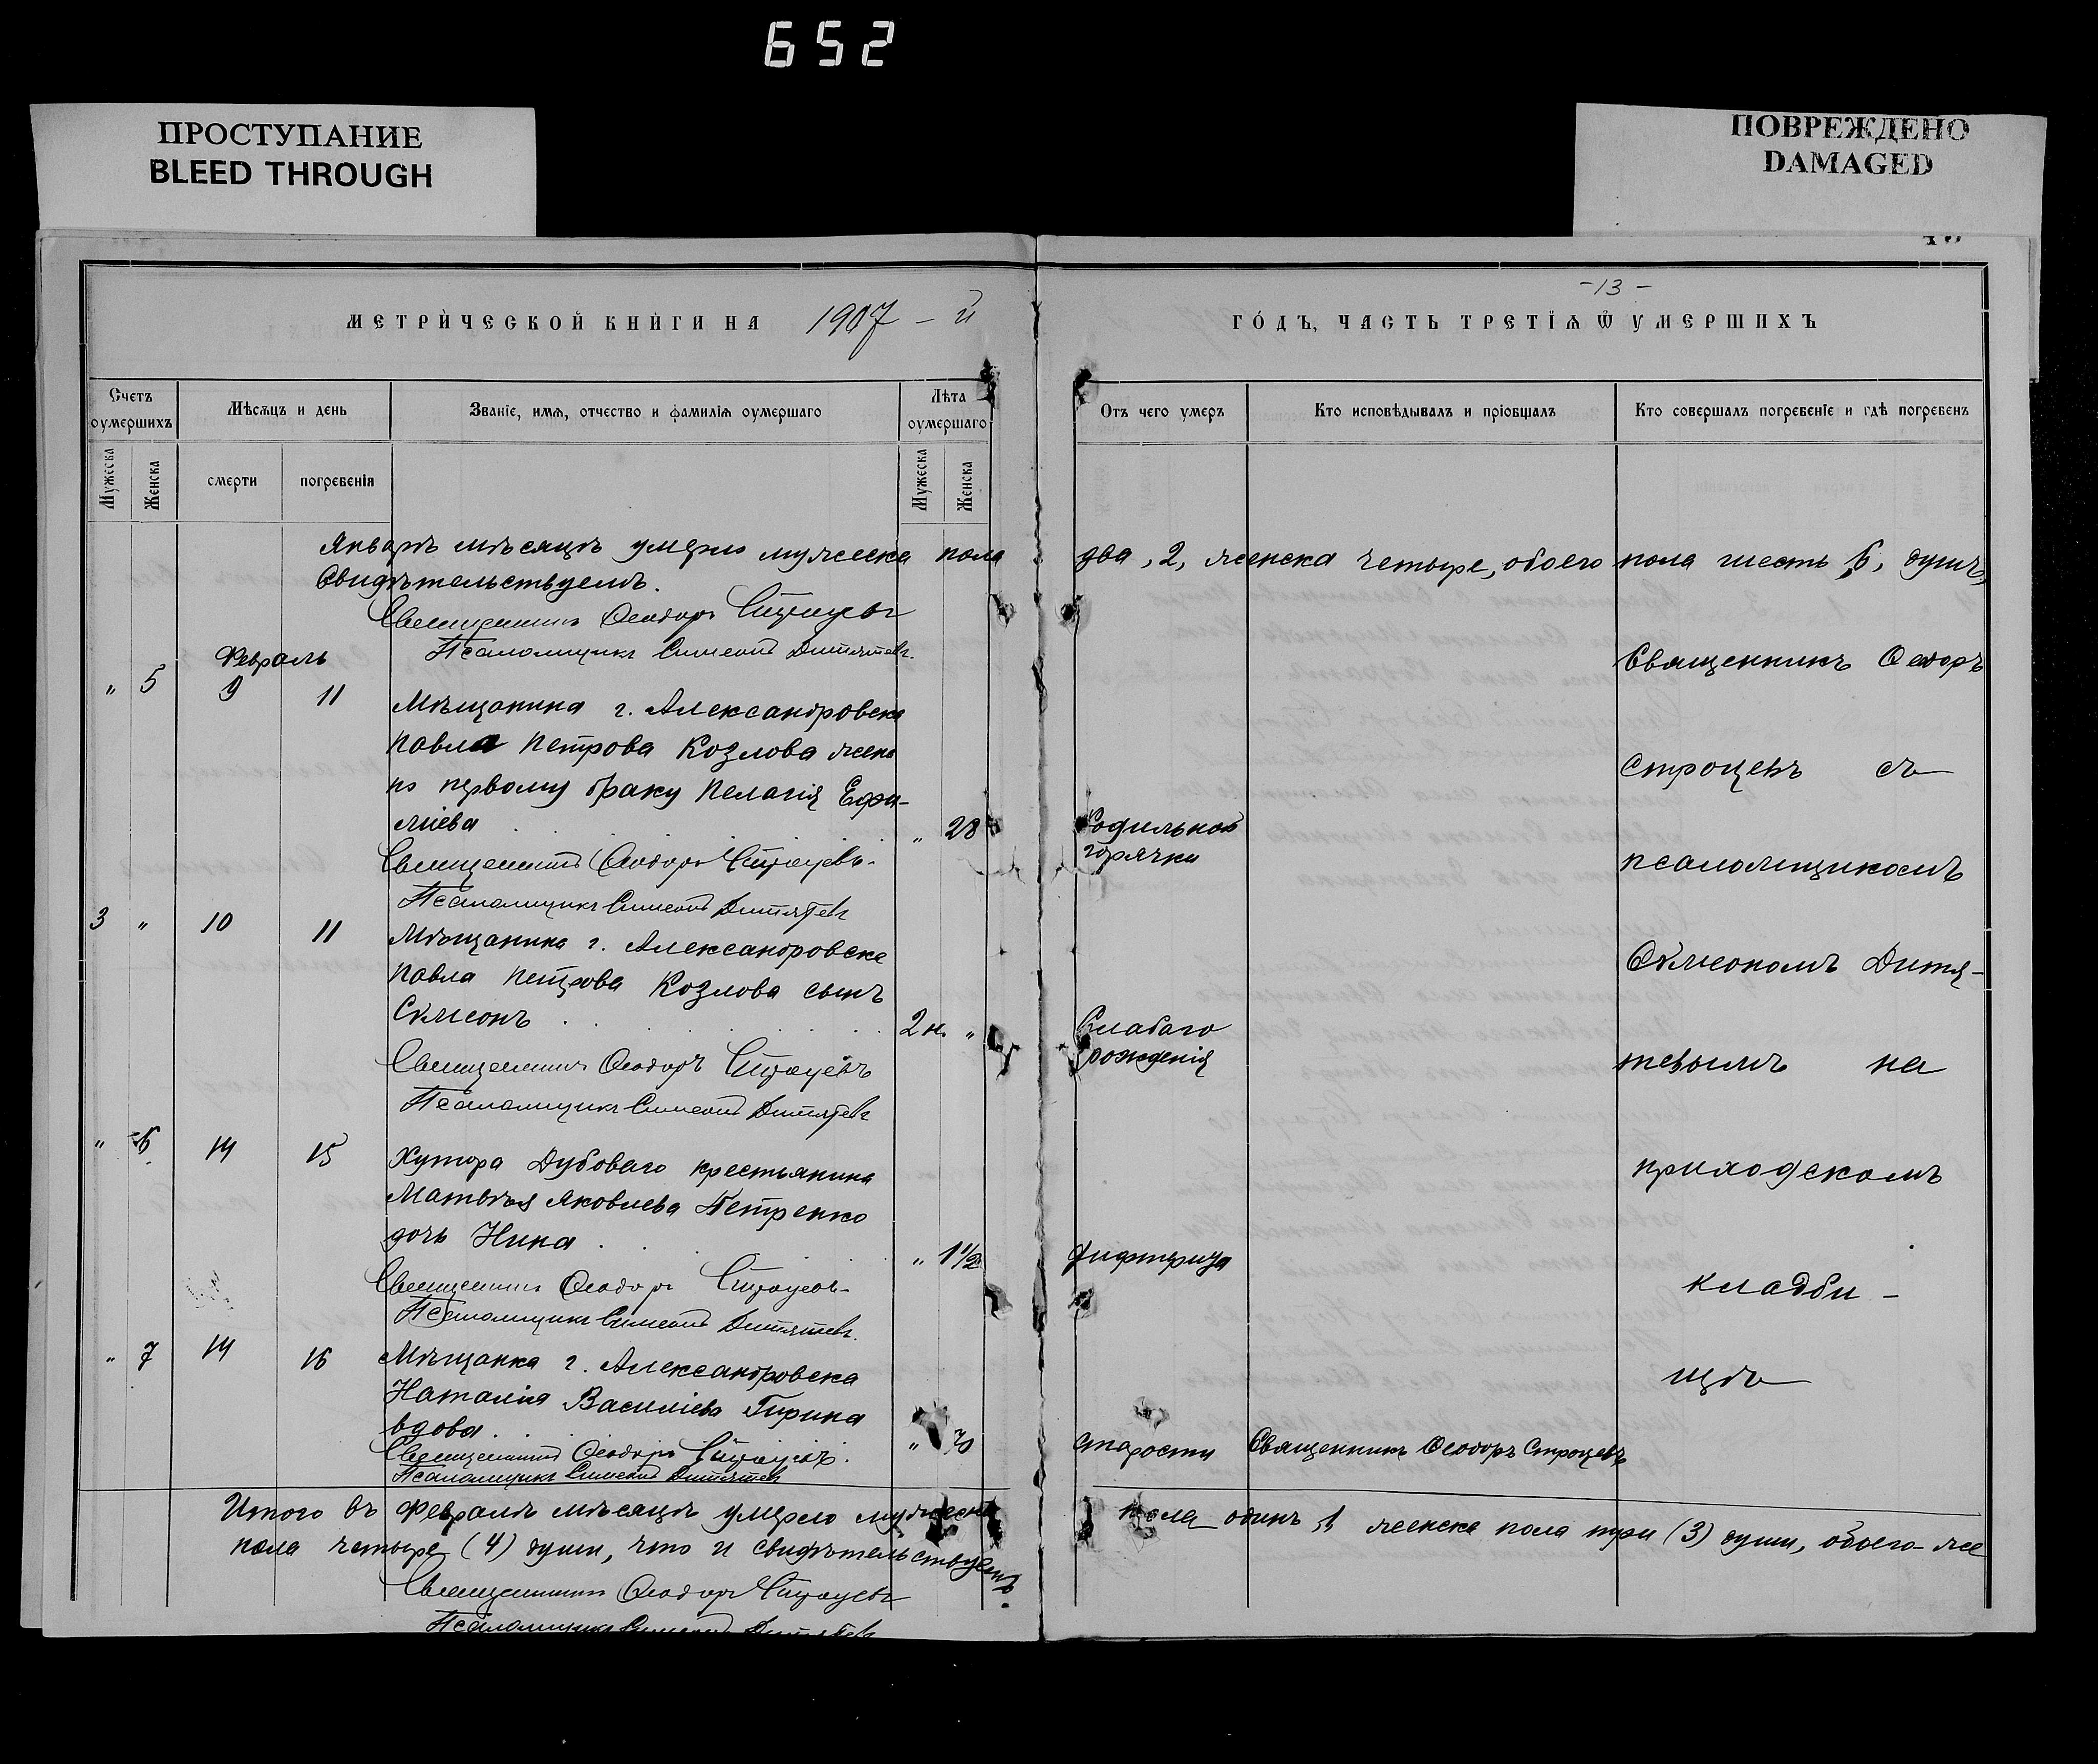 652
ПРОСТУПАНИЕ
BLEED THROUGH
ПОВРЕЖДЕНО
DAMAGED
МЕТРИЧЕСКОЙ КНИГИ НА 1907 - й
- 13 -
ГОДЪ, ЧАСТЬ ТРЕТІѦ Ѿ УМЕРШИХЪ
Счетъ оумершихъ
Мѣсѧцъ и день
Званіе, имѧ, отчество и фамиліѧ оумершаго
Лѣта оумершаго
Отъ чего умеръ
Кто исповѣдывалъ и пріобщалъ
Кто совершалъ погребеніе и гдѣ погребенъ
Мужеска
Женска
смерти
погребенія
Мужеска
Женска
Январѣ мѣсяцѣ умерло мужеска пола два, 2, женска четыре, обоего пола шесть 6, душъ,
Свидѣтельствуемъ.
Священникъ Ѳеодоръ Строцевъ
Псаломщикъ Симеонъ Дитятевъ.
Февраль
" 5 9 11 Мѣщанина г. Александровска
Павла Петрова Козлова жена
по первому браку Пелагія Ефи-
міева " 28 Родильной
горячки
Священникъ Ѳеодоръ Строцевъ.
Псаломщикъ Симеонъ Дитятевъ
3 " 10 11 Мѣщанина г. Александровска
Павла Петрова Козлова сынъ
Симеонъ 2 н. " Слабаго
рожденія
Священникъ Ѳеодоръ Строцевъ
Псаломщикъ Симеонъ Дитятевъ
" 6 14 15 Хутора Дубоваго крестьянина
Матвѣя Яковлева Петренко
дочь Нина " 1 1/2 Дифтерита
Священникъ Ѳеодоръ Строцевъ
Псаломщикъ Симеонъ Дитятевъ.
" 7 14 16 Мѣщанка г. Александровска
Наталія Василіева Гирина
вдова " 70 Старости Священникъ Ѳеодоръ Строцевъ
Священникъ Ѳеодоръ Строцевъ.
Псаломщикъ Симеонъ Дитятевъ
Священникъ Ѳеодоръ
Строцевъ съ
псаломщикомъ
Симеономъ Дитя-
тевымъ на
приходскомъ
кладби-
щѣ
Итого въ Февралѣ мѣсяцѣ умерло мужеска пола одинъ, 1 женска пола три (3) души, обоего же
пола четыре (4) души, что и свидѣтельствуемъ.
Священникъ Ѳеодоръ Строцевъ
Псаломщикъ Симеонъ Дитятевъ